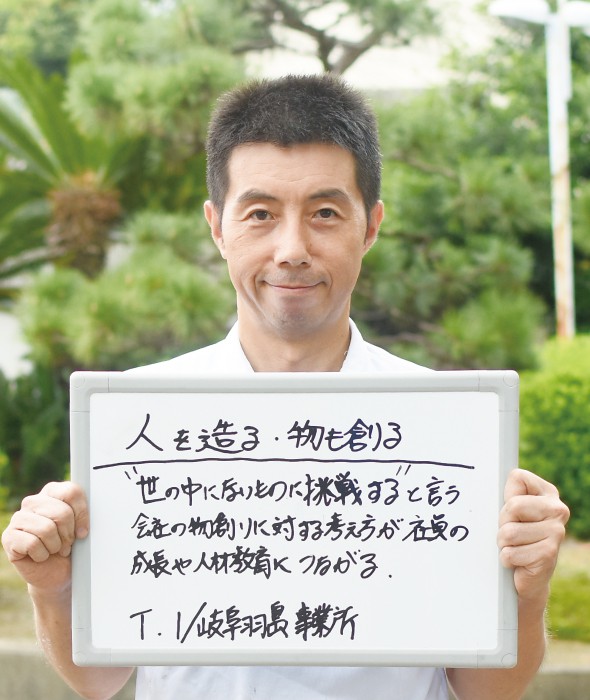 人を造る・物も創る
"世の中にないものに挑戦する"と言う
会社の物創りに対する考え方が社員の
成長や人材教育につながる.
T. I/岐阜羽島事業所